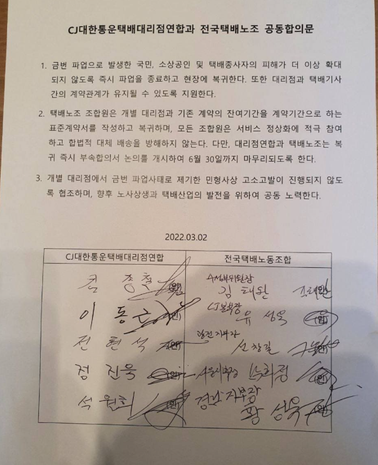 CJ대한통운택배대리점연합과 전국택배노조 공동합의문
1. 금번 파업으로 발생한 국민, 소상공인 및 택배종사자의 피해가 더 이상 확대
되지 않도록 즉시 파업을 종료하고 현장에 복귀한다. 또한 대리점과 택배기사
간의 계약관계가 유지될 수 있도록 지원한다.
2. 택배노조 조합원은 개별 대리점과 기존 계약의 잔여기간을 계약기간으로 하는
표준계약서를 작성하고 복귀하며, 모든 조합원은 서비스 정상화에 적극 참여
하고 합법적 대체 배송을 방해하지 않는다. 다만, 대리점연합과 택배노조는 복
귀 즉시 부속합의서 논의를 개시하여 6월 30일까지 마무리되도록 한다.
3. 개별 대리점에서 금번 파업사태로 제기한 민형사상 고소고발이 진행되지 않도
록 협조하며, 향후 노사상생과 택배산업의 발전을 위하여 공동 노력한다.
2022.03.02
CJ대한통운택배대리점연합 전국택배노동조합
김종철 김태완
이동근 유성욱
전현석 신창길
정진욱
석원희 경남지부장 황성욱